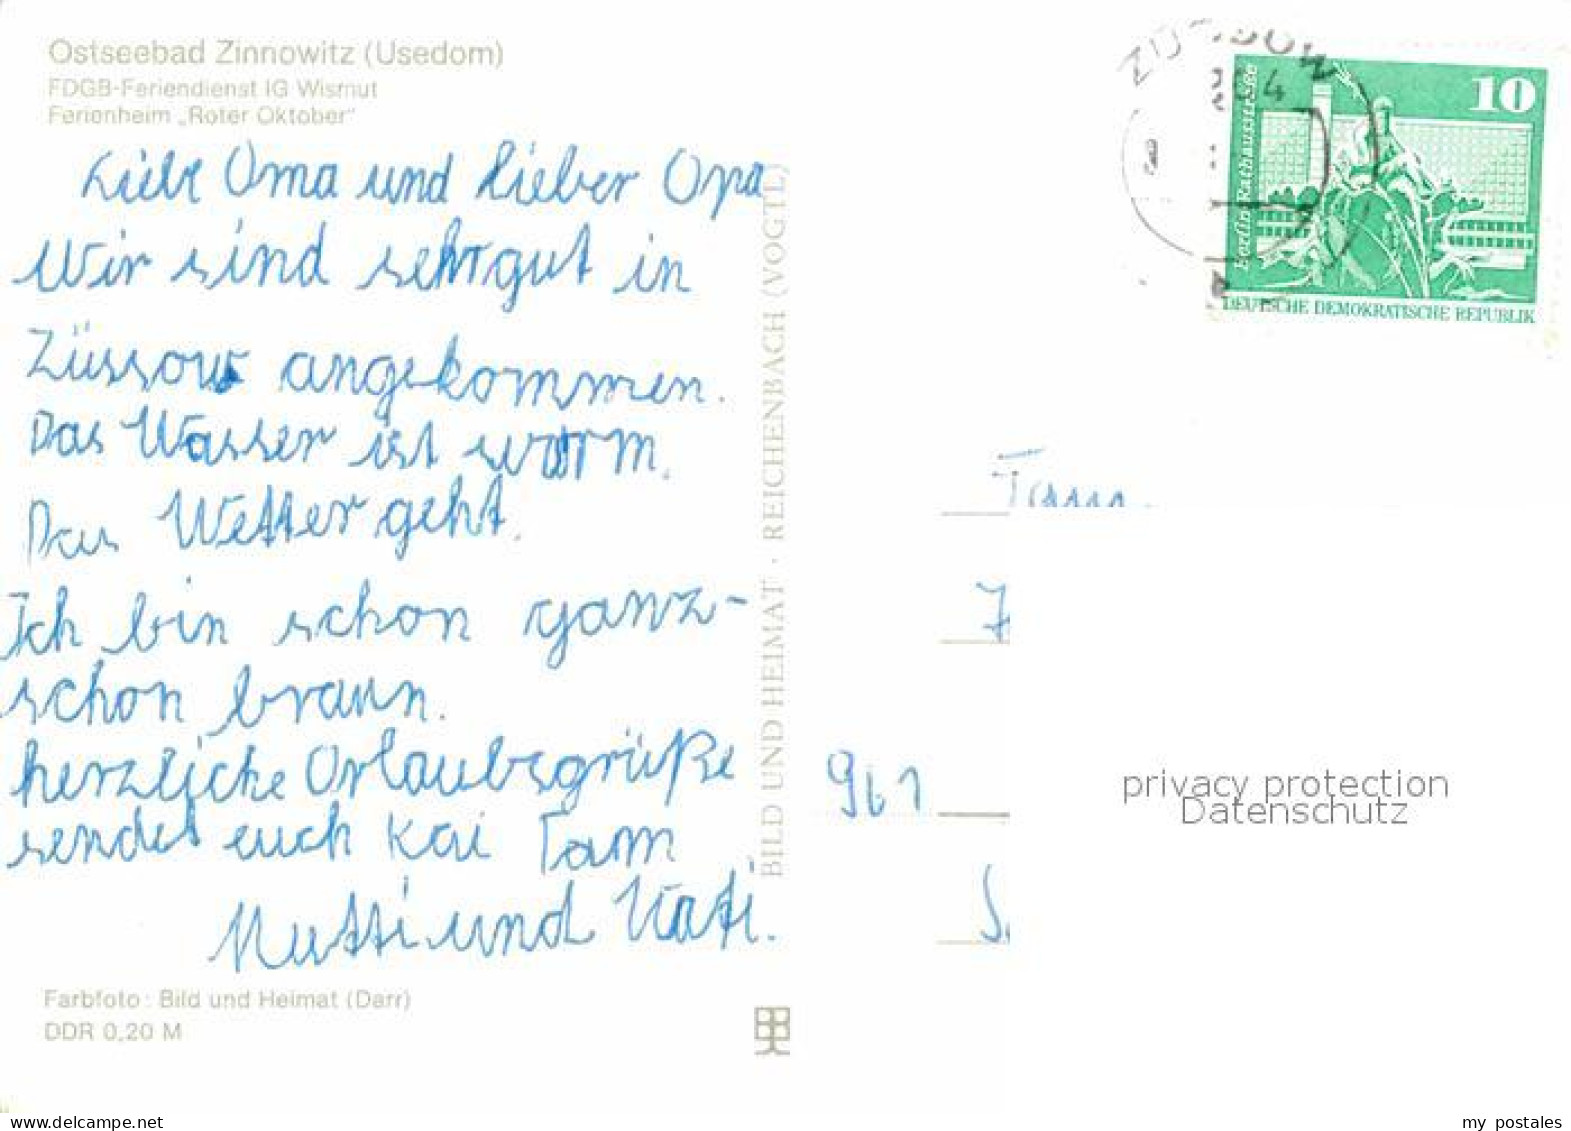 Ostseebad Zinnowitz (Usedom)
FDGB-Feriendienst IG Wismut
Ferienheim „Roter Oktober"
Liebe Oma und lieber Opa
Wir sind sehr gut in
Züssow angekommen.
Das Wasser ist warm.
Das Wetter geht.
Ich bin schon ganz-
schon braun.
herzliche Orlaubsgrüße
sendet euch Kai Tam
Mutti und Kati.
Farbfoto: Bild und Heimat (Darr)
DDR 0,20 M
BILD UND HEIMAT · REICHENBACH (VOGTL)
ZÜSSOW
10
Berlin, Rathausstraße
DEUTSCHE DEMOKRATISCHE REPUBLIK
961
privacy protection
Datenschutz
my postales